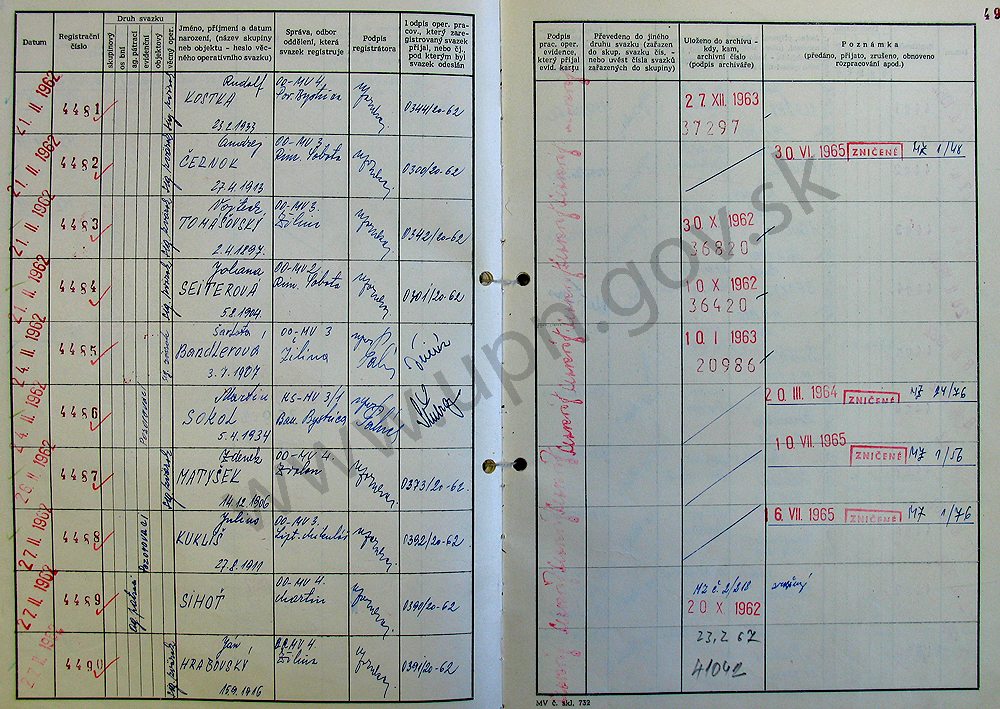 Datum
Registrační číslo
Druh svazku
skupinový
osobní
ag. pátrací
evidenční
objektový
věcný oper.
Jméno, příjmení a datum
narození, (název skupiny
neb objektu - heslo věc-
ného operativního svazku)
Správa, odbor
oddělení, která
svazek registruje
Podpis
registrátora
Podpis oper. pra-
cov., který zare-
gistrovaný svazek
přijal, nebo čj.,
pod kterým byl
svazek odeslán
21. II. 1962
4481
Rudolf
KOSTKA
23.2.1933
OO-MV 4.
Pov. Bystrica
0344/20-62
21. II. 1962
4482
Ondrej
ČERNOK
27.4.1913
OO-MV 3
Rim. Sobota
0300/20-62
21. II. 1962
4483
Vojtech
TOMÁŠOVSKÝ
2.4.1897.
OO-MV 3.
Žilina
0342/20-62
21. II. 1962
4484
Joliana
SEITEROVÁ
5.8.1904
OO-MV 2
Rim. Sobota
0301/20-62
24. II. 1962
4485
Bandlerová
3.7.1907
OO-MV 3
Žilina
24. II. 1962
4486
Martin
SOKOL
5.4.1934
KS-MV 3/1
Ban. Bystrica
26. II. 1962
4487
Zdenek
MATYŠEK
14.12.1906
OO-MV 4.
Zvolen
0373/20-62.
27. II. 1962
4488
Július
KUKLIŠ
27.8.1911
OO-MV 3.
Lipt. Mikuláš
0392/20-62
27. II. 1962
4489
SIHOŤ
OO-MV 4.
Martin
0390/20-62
4490
Ján
HRABOVSKÝ
15.9.1916
OO-MV 4
Žilina
0391/20-62
49
Podpis
prac. oper.
evidence,
který přijal
evid. kartu
Převedeno do jiného
druhu svazku (zařazen
do skup. svazku čís. -
nebo uvést čísla svazků
zařazených do skupiny)
Uloženo do archivu -
kdy, kam,
archivní číslo
(podpis archiváře)
Poznámka
(předáno, přijato, zrušeno, obnoveno
rozpracování apod.)
27 XII. 1963
37297
30. VI. 1965 ZNIČENÉ MZ 1/48
30 X 1962
36820
10 X 1962
36420
10. I 1963
20986
20. III. 1964 ZNIČENÉ MZ 24/76
10. VII. 1965
ZNIČENÉ MZ 1/56
16. VII. 1965 ZNIČENÉ MZ 1/76
MZ č. 2/218
20 X 1962
23.2.67
41042
MV č. skl. 732
www.upn.gov.sk